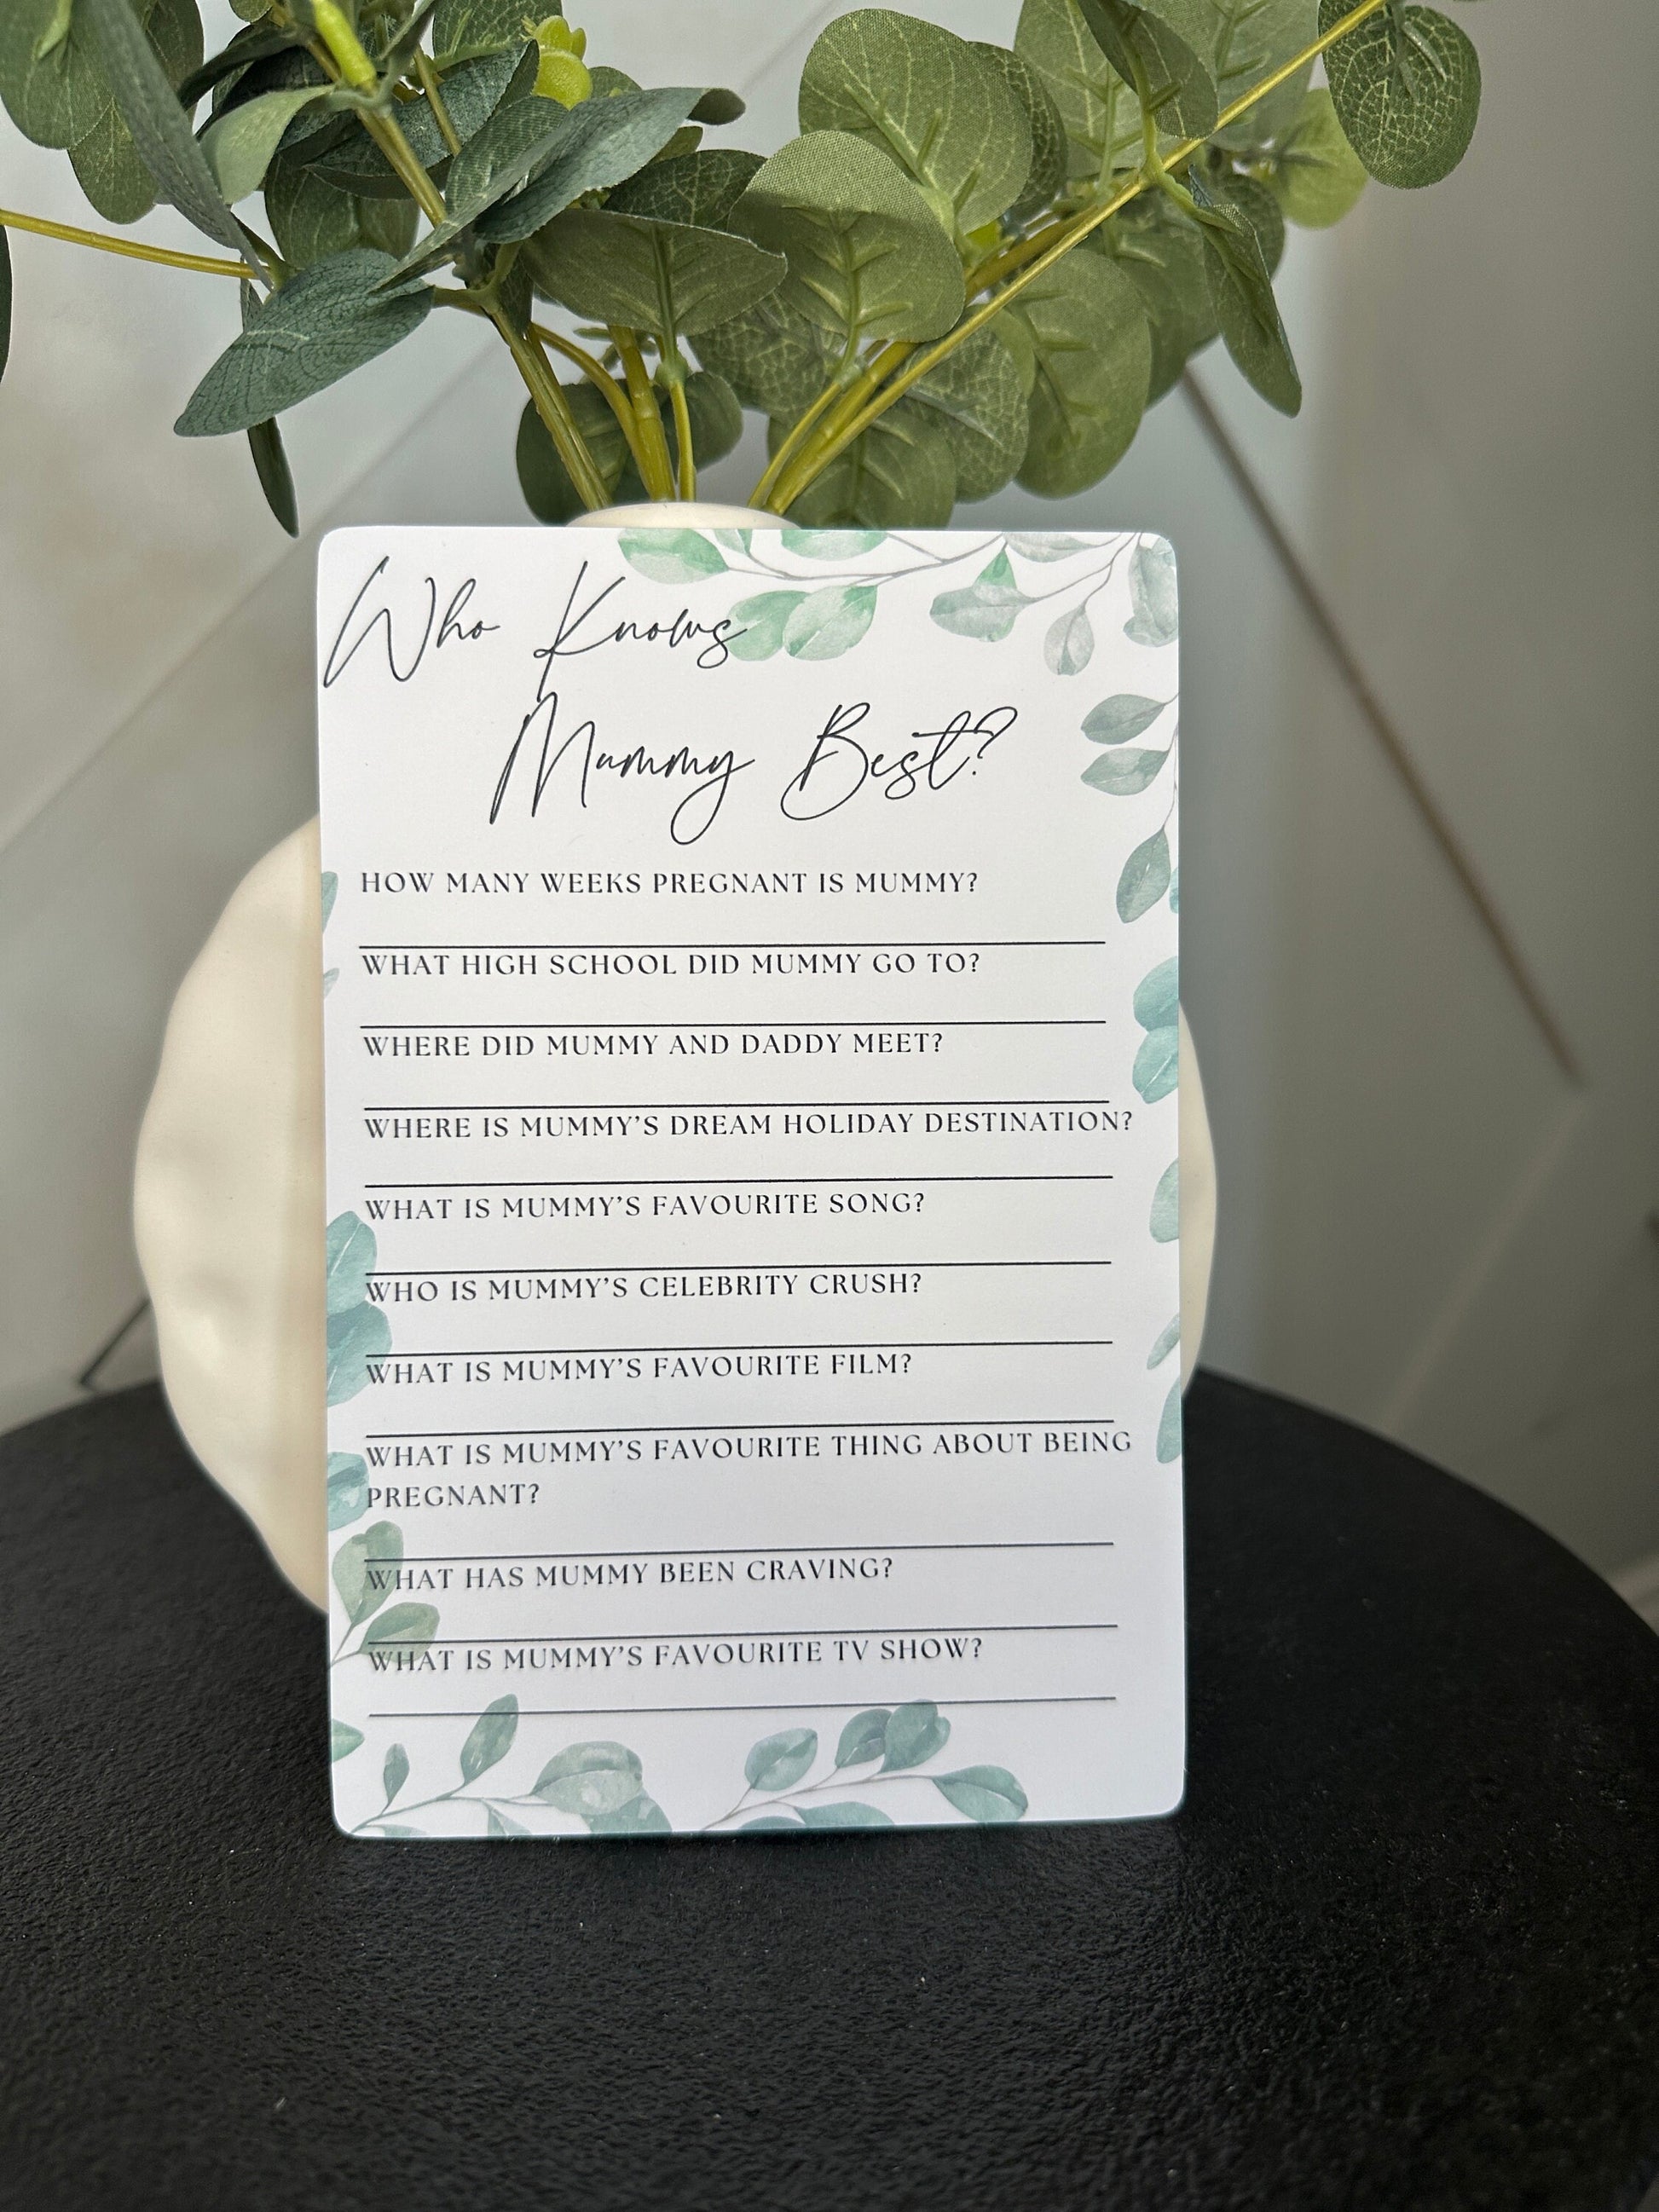 Who Knows
Mummy Best?
HOW MANY WEEKS PREGNANT IS MUMMY?
WHAT HIGH SCHOOL DID MUMMY GO TO?
WHERE DID MUMMY AND DADDY MEET?
WHERE IS MUMMY'S DREAM HOLIDAY DESTINATION?
WHAT IS MUMMY'S FAVOURITE SONG?
WHO IS MUMMY'S CELEBRITY CRUSH?
WHAT IS MUMMY'S FAVOURITE FILM?
WHAT IS MUMMY'S FAVOURITE THING ABOUT BEING
PREGNANT?
WHAT HAS MUMMY BEEN CRAVING?
WHAT IS MUMMY'S FAVOURITE TV SHOW?